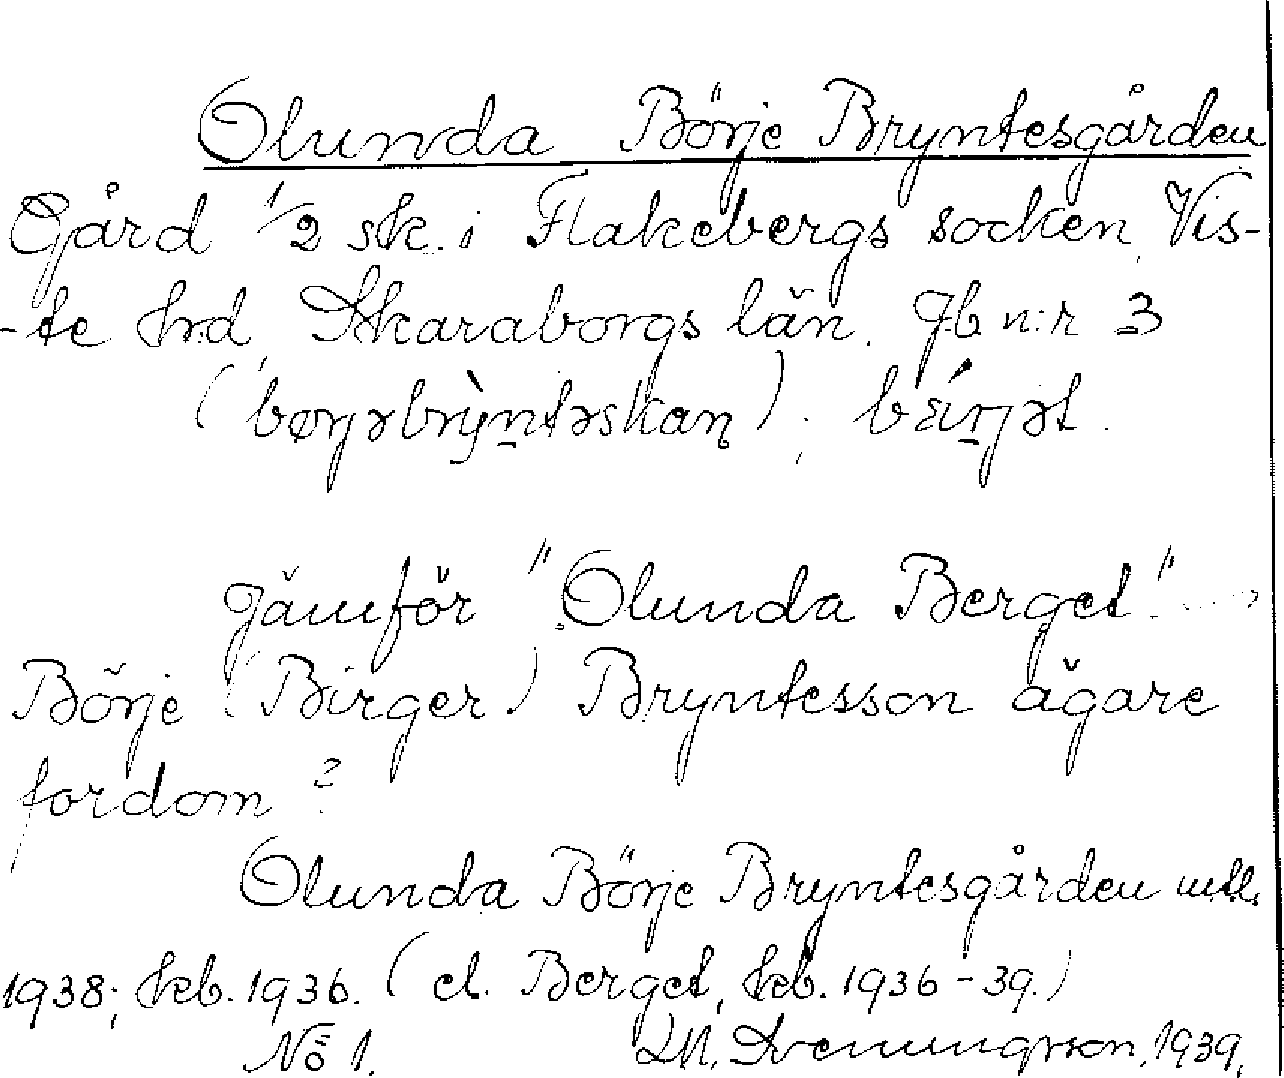 Olunda Börje Bryntesgården
Gård 1/2 sk. i Flakebergs socken, Vis-
-te hrd, Skaraborgs län. Jb n:r 3
(bøŋəbrỳntəskaɳ);
Jämför "Olunda Berget".
Börje (Birger) Bryntesson ägare
fordom?
Olunda Börje Bryntesgården mtl.
1938; kb. 1936. (el. Berget, kb. 1936-39.)
No 1. 1939.